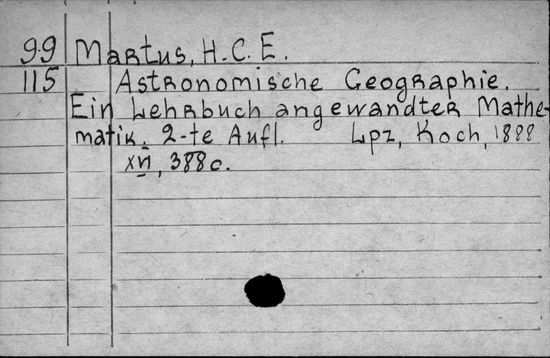 99 Martus, H. C. E.
115 Astronomische Geographie.
Ein Lehrbuch angewandter Mathe-
matik. 2-te Aufl. Lpz, Koch, 1888
XVI, 388 c.